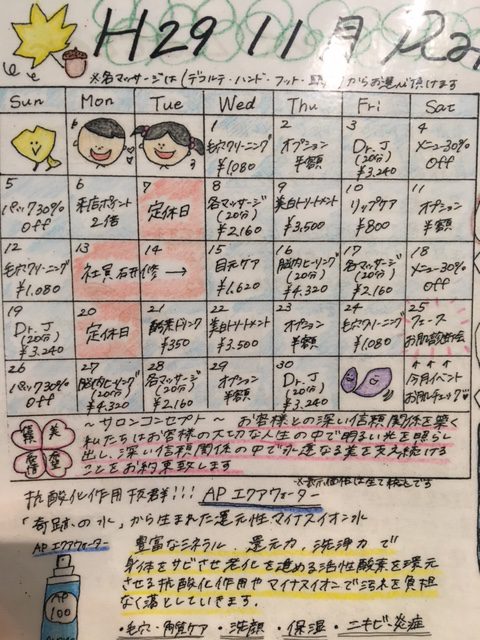 H29 11月
※各マッサージは(デコルテ・ハンド・フット・からお選び頂けます
Sun Mon Tue Wed Thu Fri Sat
1 毛穴クリーニング ¥1,080
2 オプション 半額
3 Dr.J (20分) ¥3,240
4 メニュー30% Off
5 パック30% Off
6 来店ポイント 2倍
7 定休日
8 各マッサージ (20分) ¥2,160
9 美白トリートメント ¥3,500
10 リップケア ¥800
11 オプション 半額
12 毛穴クリーニング ¥1,080
13 社員研修
14 →
15 目元ケア ¥1,620
16 脳内ヒーリング (20分) ¥4,320
17 各マッサージ (20分) ¥2,160
18 メニュー30% Off
19 Dr.J (20分) ¥3,240
20 定休日
21 酵素ドリンク ¥350
22 美白トリートメント ¥3,500
23 オプション 半額
24 毛穴クリーニング ¥1,080
25 フェース お肌診断会
26 パック30% Off
27 脳内ヒーリング (20分) ¥4,320
28 各マッサージ (20分) ¥2,160
29 オプション 半額
30 Dr.J (20分) ¥3,240
↑↑↑ 今月イベント お肌チェック♡
～サロンコンセプト～ お客様との深い信頼関係を築く
私たちはお客様の大切な人生の中で明るい光を照らし
出し、深い信頼関係の中で永遠なる美を支え続ける
ことをお約束致します
※表示価格は全て税込です
抗酸化作用抜群!!! APエクアウォーター
「奇跡の水」から生まれた還元性マイナスイオン水
APエクアウォーター
豊富なミネラル、還元力、洗浄力で
身体をサビさせ老化を進める活性酸素を還元
させる抗酸化作用やマイナスイオンで汚れを負担
なく落としていきます。
AP 100
・毛穴、角質ケア ・洗顔 ・保湿 ・ニキビ、炎症